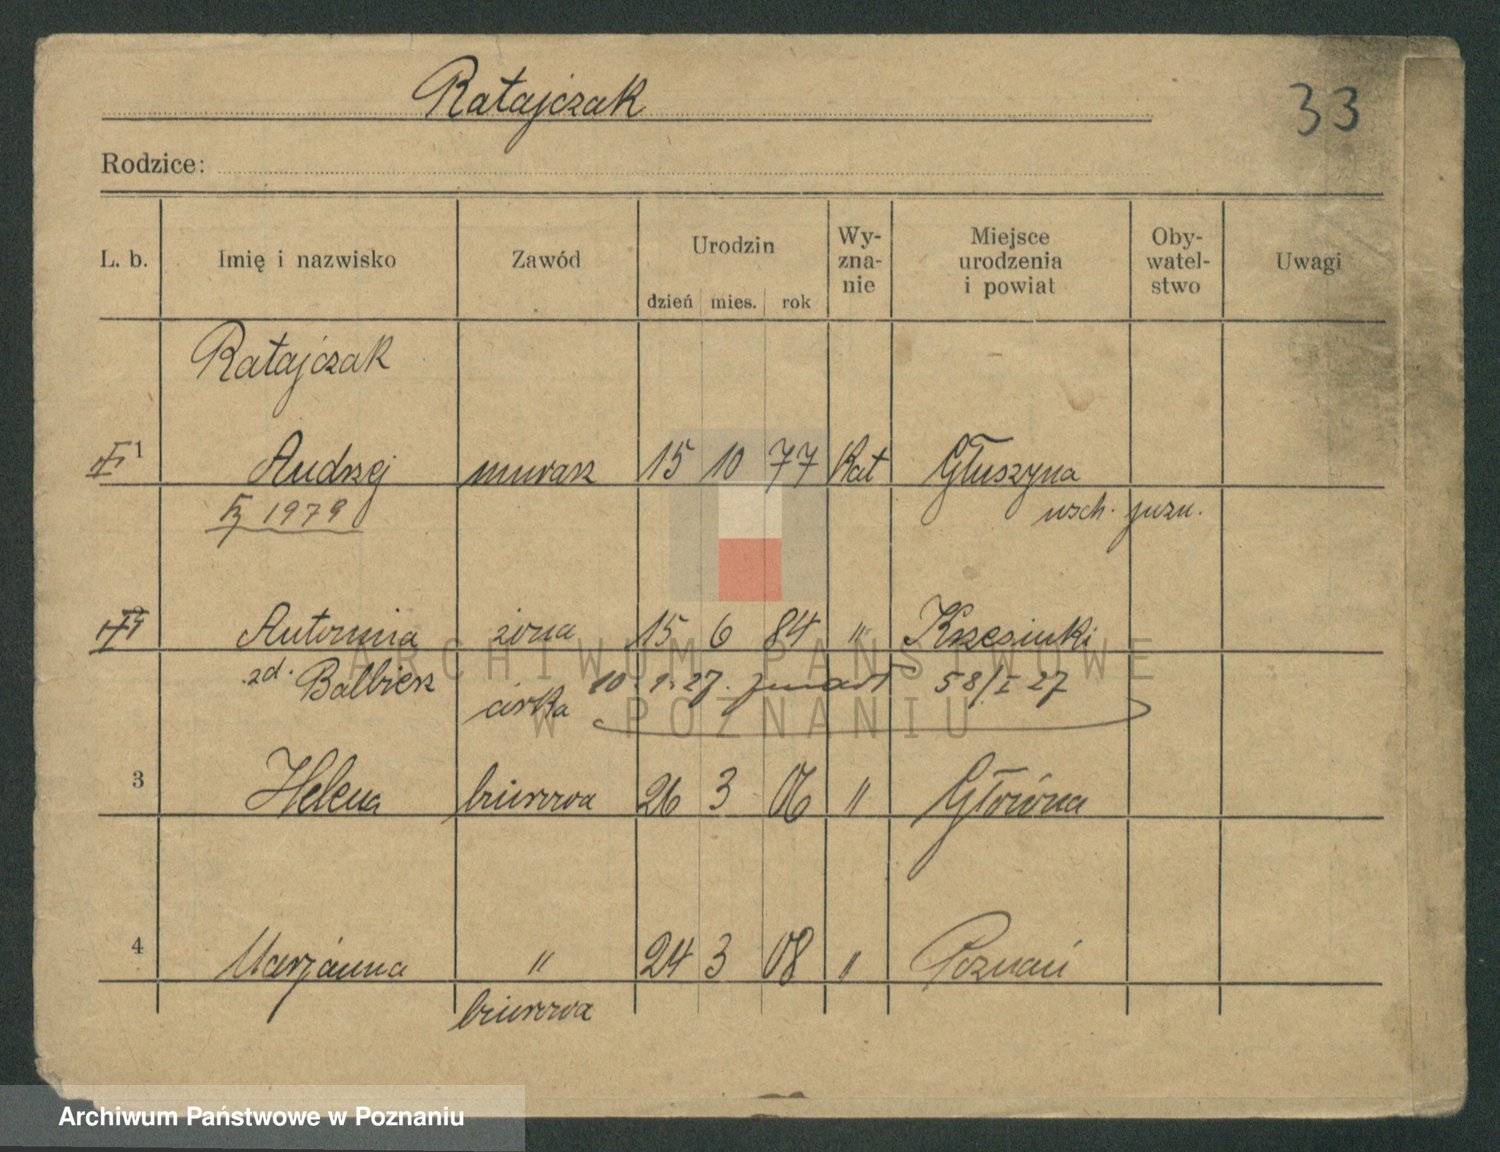 Ratajczak
33
Rodzice:
L. b. Imię i nazwisko Zawód Urodzin dzień mies. rok Wy-zna-nie Miejsce urodzenia i powiat Oby-watel-stwo Uwagi
Ratajczak
1 Andrzej murarz 15 10 77 Kat Głuszyna
1979 wsch.
Antonina żona 15 6 84 " Krzesinki
zd. Balbierz 10.1.27. zmarł 58/I 27
córka
3 Helena biurowa 26 3 06 " Główna
4 Marjanna " 24 3 08 " Poznań
biurowa
ARCHIWUM PAŃSTWOWE
W POZNANIU
Archiwum Państwowe w Poznaniu